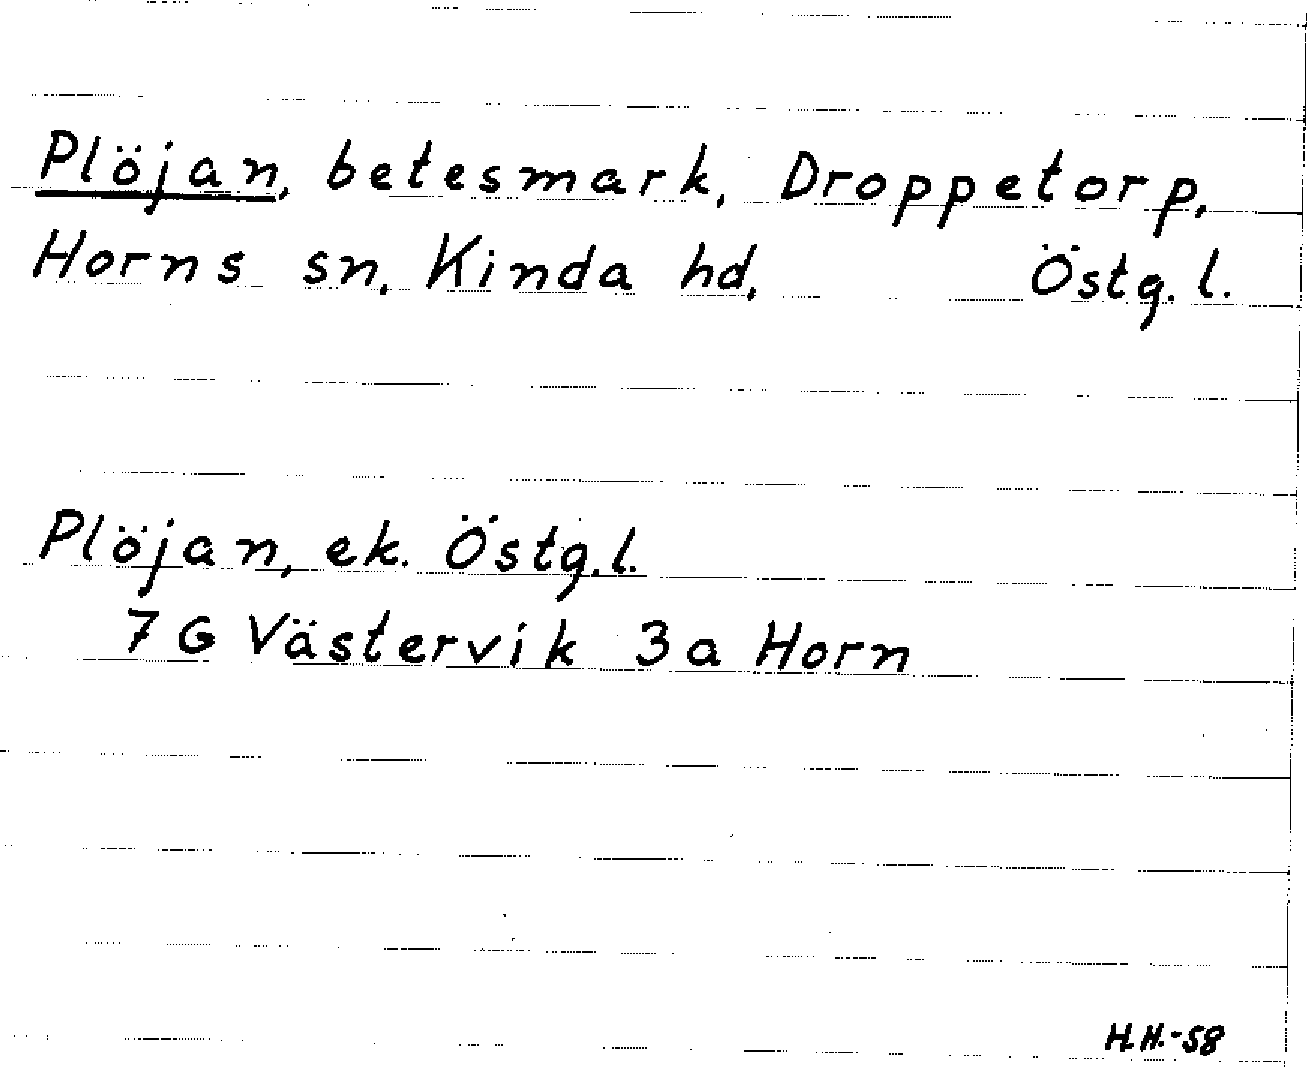 Plöjan, betesmark, Droppetorp,
Horns sn, Kinda hd, Östg. l.
Plöjan, ek. Östg.l.
7 G Västervik 3a Horn
H.H.-58